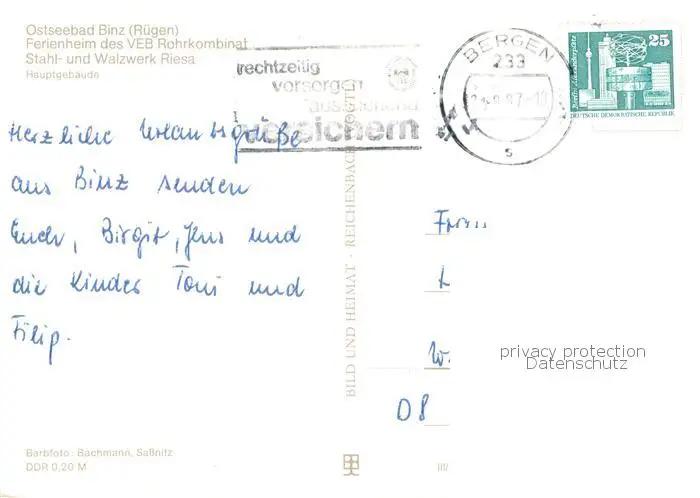 Ostseebad Binz (Rügen)
Ferienheim des VEB Rohrkombinat
Stahl- und Walzwerk Riesa
Hauptgebäude
rechtzeitig
vorsorgen
ausreichend
versichern
BERGEN
233
s
25
Berlin, Alexanderplatz
DEUTSCHE DEMOKRATISCHE REPUBLIK
Herzliche Urlaubsgrüße
aus Binz senden
Euch, Birgit, Jens und
die Kinder Toni und
Filip.
BILD UND HEIMAT · REICHENBACH (VOGTL)
Frau
W.
08
privacy protection
Datenschutz
Farbfoto: Bachmann, Saßnitz
DDR 0,20 M
III/